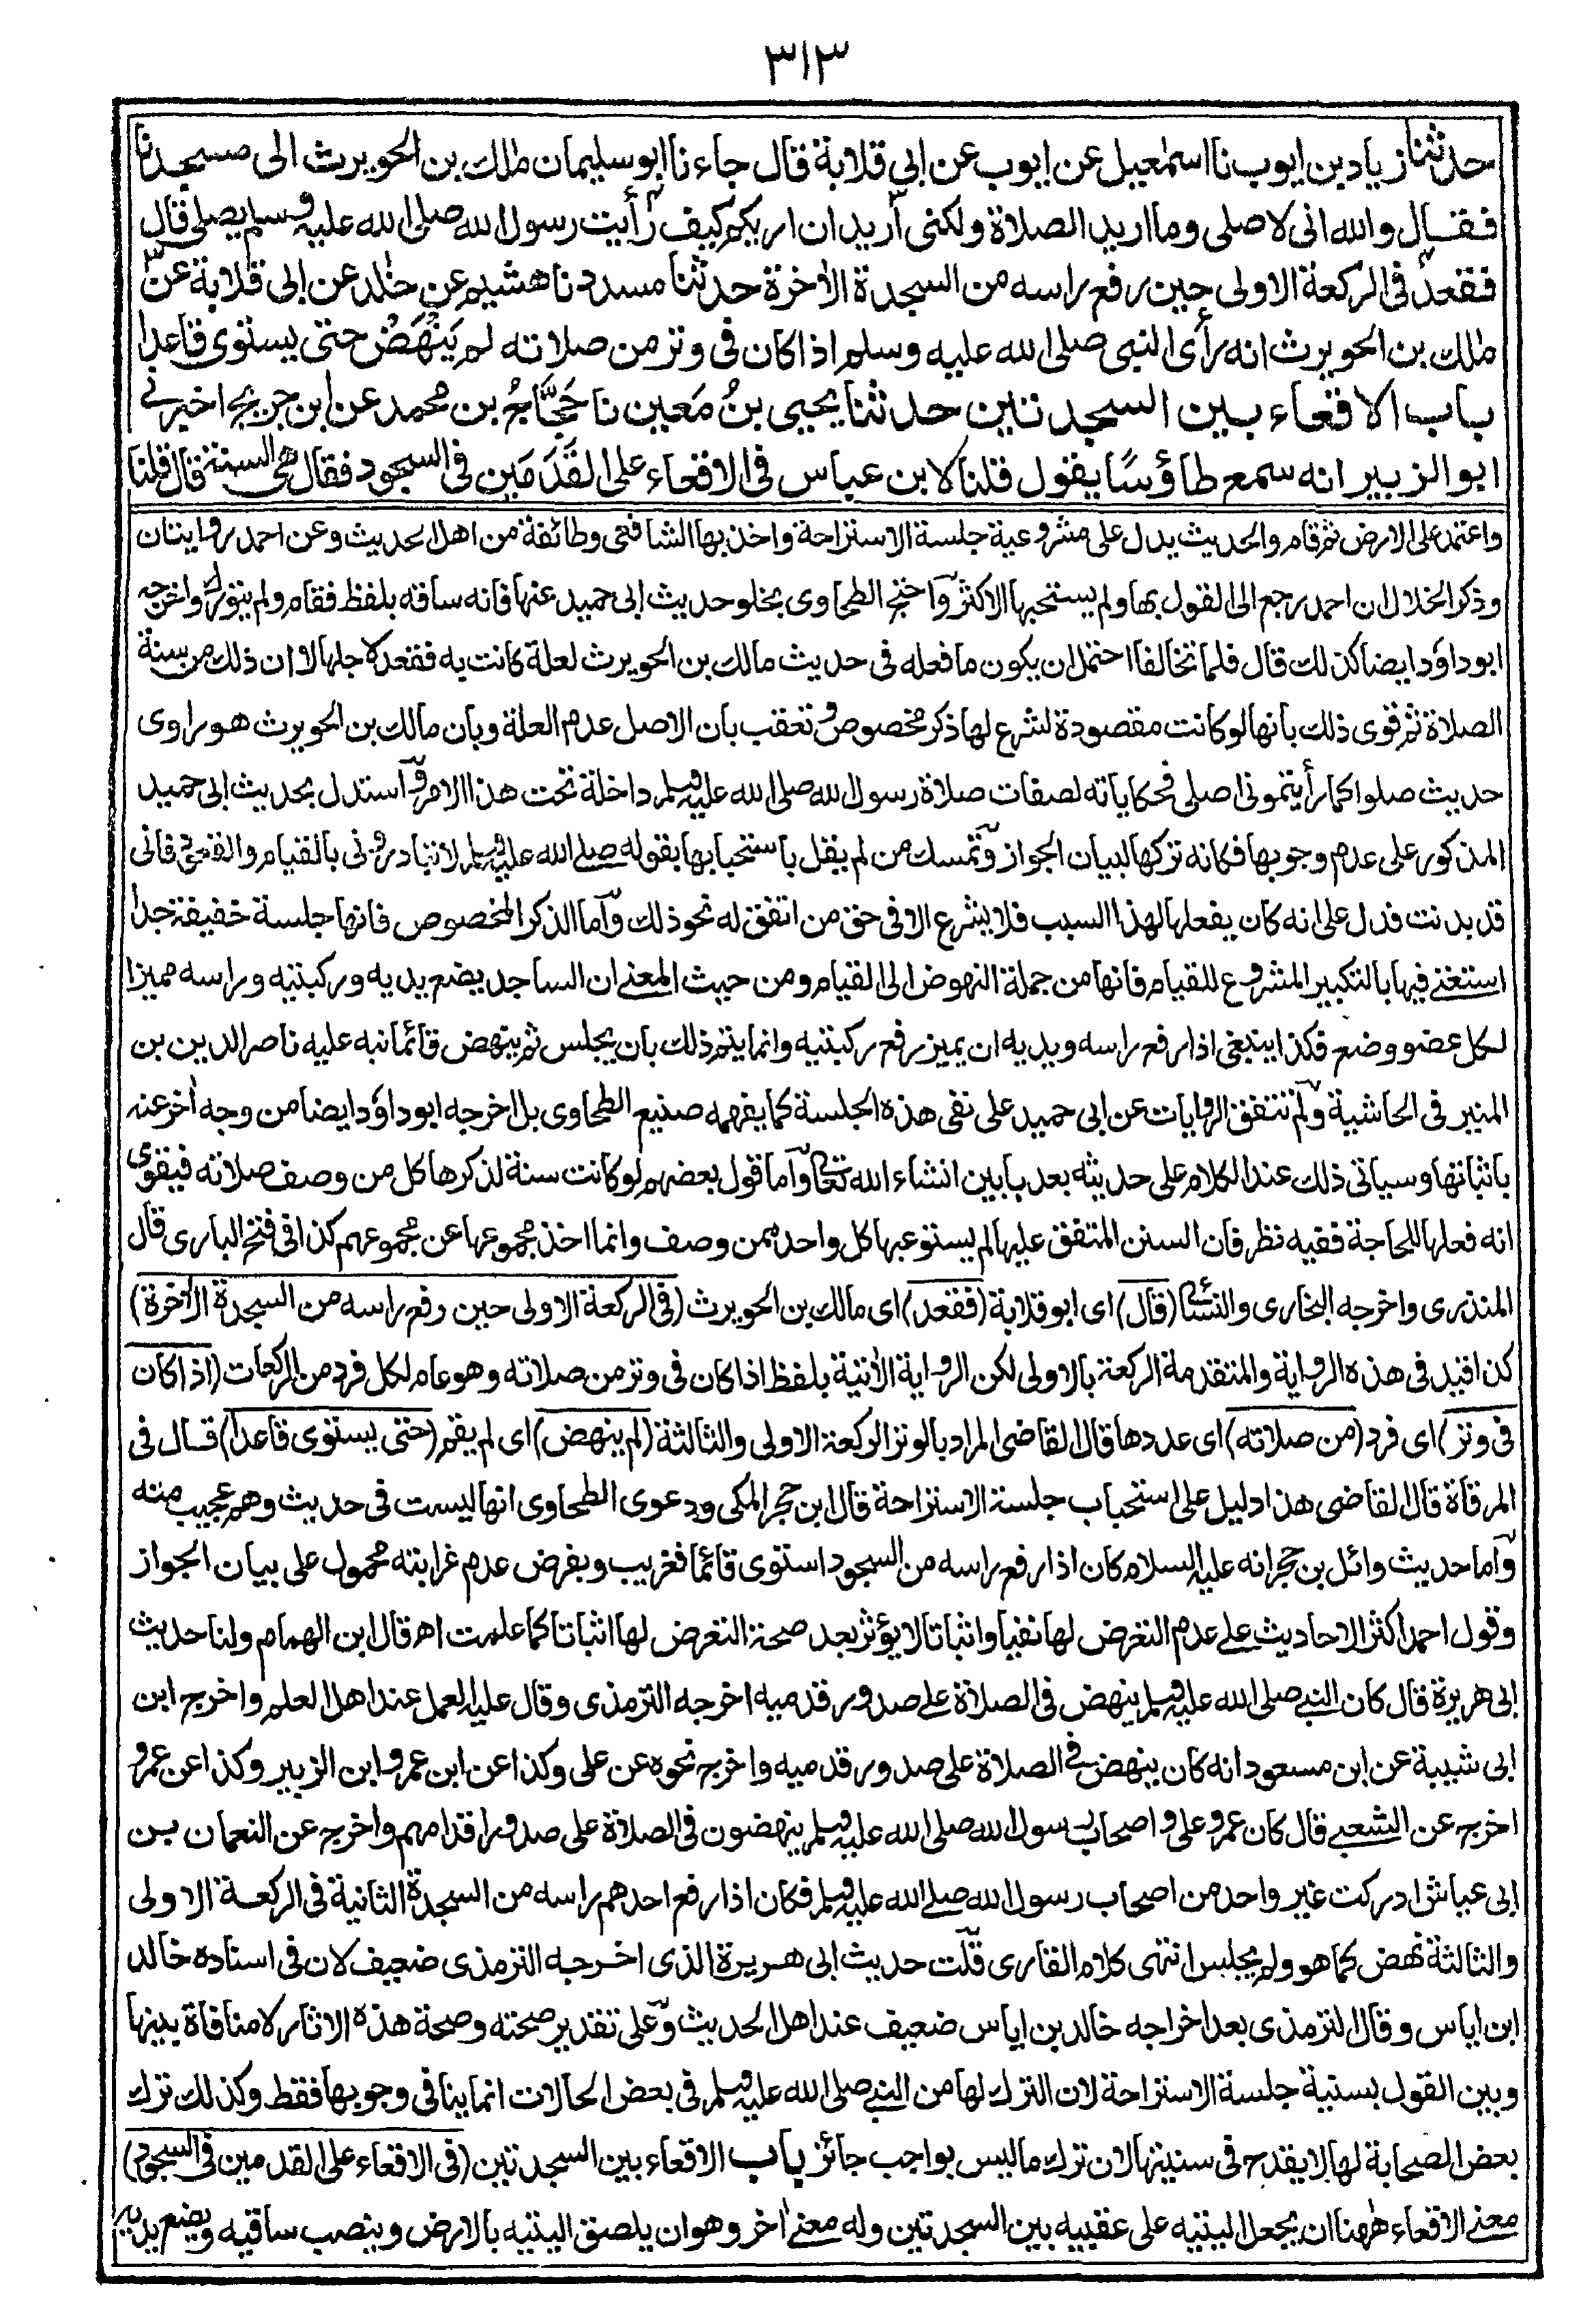 ٣١٣
حدثنا زياد بن ايوب نا اسمٰعيل عن ايوب عن ابى قلابة قال جاءنا ابو سليمان مٰلك بن الحويرث الى مسجدنا
فقال والله انى لاصلى وما اريد الصلاة ولكنى اريد ان اريكم كيف رأيت رسول الله صلى الله عليه وسلم يصلى قال
فقعد فى الركعة الاولى حين رفع راسه من السجدة الاٰخرة حدثنا مسدد نا هشيم عن خٰلد عن ابى قلابة عن
مٰلك بن الحويرث انه رأى النبى صلى الله عليه وسلم اذا كان فى وتر من صلاته لم يَنْهَضْ حتى يستوى قاعدا
باب الاقعاء بين السجدتين حدثنا يحيى بنُ مَعين نا حَجَّاجُ بن محمد عن ابن جريج اخبرنى
ابو الزبير انه سمع طاؤسًا يقول قلنا لابن عباس فى الاقعاء على القَدَمَين فى السجود فقال هى السنة قال قلنا
واعتمد على الارض ثم قام والحديث يدل على مشروعية جلسة الاستراحة واخذ بها الشافعى وطائفة من اهل الحديث وعن احمد روايتان
وذكر الخلال ان احمد رجع الى القول بها ولم يستحبها الاكثر واحتج الطحاوى بخلو حديث ابى حميد عنها فانه ساقه بلفظ فقام ولم يتورك واخرجه
ابو داؤد ايضا كذلك قال فلما تخالفا احتمل ان يكون ما فعله فى حديث مالك بن الحويرث لعلة كانت به فقعد لاجلها لا ان ذلك من سنة
الصلاة ثم قوى ذلك بانها لو كانت مقصودة لشرع لها ذكر مخصوص وتعقب بان الاصل عدم العلة وبان مالك بن الحويرث هو راوى
حديث صلوا كما رأيتمونى اصلى فحكاياته لصفات صلاة رسول الله صلى الله عليه وسلم داخلة تحت هذا الامر واستدل بحديث ابى حميد
المذكور على عدم وجوبها فكانه تركها لبيان الجواز وتمسك من لم يقل باستحبابها بقوله صلى الله عليه وسلم لا تبادرونى بالقيام والقعود فانى
قد بدنت فدل على انه كان يفعلها لهذا السبب فلا يشرع الا فى حق من اتفق له نحو ذلك واما الذكر المخصوص فانها جلسة خفيفة جدا
استغنى فيها بالتكبير المشروع للقيام فانها من جملة النهوض الى القيام ومن حيث المعنى ان الساجد يضع يديه وركبتيه وراسه مميزا
لكل عضو وضع فكذا ينبغى اذا رفع راسه ويديه ان يميز رفع ركبتيه وانما يتم ذلك بان يجلس ثم ينهض قائما نبه عليه ناصر الدين بن
المنير فى الحاشية ولم تتفق الروايات عن ابى حميد على نفى هذه الجلسة كما يفهمه صنيع الطحاوى بل اخرجه ابو داؤد ايضا من وجه اٰخر عنه
باثباتها وسياتى ذلك عند الكلام على حديثه بعد بابين انشاء الله تعالى واما قول بعضهم لو كانت سنة لذكرها كل من وصف صلاته فيقوى
انه فعلها للحاجة ففيه نظر فان السنن المتفق عليها لم يستوعبها كل واحد ممن وصف وانما اخذ مجموعها عن مجموعهم كذا فى فتح البارى قال
المنذرى واخرجه البخارى والنسائى (قال) اى ابو قلابة (فقعد) اى مالك بن الحويرث (فى الركعة الاولى حين رفع راسه من السجدة الاٰخرة)
كذا قيد فى هذه الرواية والمتقدمة الركعة بالاولى لكن الرواية الاٰتية بلفظ اذا كان فى وتر من صلاته وهو عام لكل فرد من الركعات (اذا كان
فى وتر) اى فرد (من صلاته) اى عددها قال القاضى المراد بالوتر الركعة الاولى والثالثة (لم ينهض) اى لم يقم (حتى يستوى قاعدا) قال فى
المرقاة قال القاضى هذا دليل على استحباب جلسة الاستراحة قال ابن حجر المكى ودعوى الطحاوى انها ليست فى حديث وهم عجيب منه
واما حديث وائل بن حجر انه عليه السلام كان اذا رفع راسه من السجود استوى قائما فغريب وبفرض عدم غرابته محمول على بيان الجواز
وقول احمد اكثر الاحاديث على عدم التعرض لها نفيا واثباتا لا يؤثر بعد صحة التعرض لها اثباتا كما علمت اه قال ابن الهمام ولنا حديث
ابى هريرة قال كان النبى صلى الله عليه وسلم ينهض فى الصلاة على صدور قدميه اخرجه الترمذى وقال عليه العمل عند اهل العلم واخرج ابن
ابى شيبة عن ابن مسعود انه كان ينهض فى الصلاة على صدور قدميه واخرج نحوه عن على وكذا عن ابن عمر وابن الزبير وكذا عن عمر و
اخرج عن الشعبى قال كان عمر وعلى واصحاب رسول الله صلى الله عليه وسلم ينهضون فى الصلاة على صدور اقدامهم واخرج عن النعمان بن
ابى عياش ادركت غير واحد من اصحاب رسول الله صلى الله عليه وسلم فكان اذا رفع احدهم راسه من السجدة الثانية فى الركعة الاولى
والثالثة نهض كما هو ولم يجلس انتهى كلام القارى قلت حديث ابى هريرة الذى اخرجه الترمذى ضعيف لان فى اسناده خالد
ابن اياس وقال الترمذى بعد اخراجه خالد بن اياس ضعيف عند اهل الحديث وعلى تقدير صحته وصحة هذه الاٰثار لا منافاة بينها
وبين القول بسنية جلسة الاستراحة لان الترك لها من النبى صلى الله عليه وسلم فى بعض الحالات انما ينافى وجوبها فقط وكذلك ترك
بعض الصحابة لها لا يقدح فى سنيتها لان ترك ما ليس بواجب جائز باب الاقعاء بين السجدتين (فى الاقعاء على القدمين فى السجود)
معنى الاقعاء هٰهنا ان يجعل اليتيه على عقبيه بين السجدتين وله معنى اٰخر وهو ان يلصق اليتيه بالارض وينصب ساقيه ويضع يديه